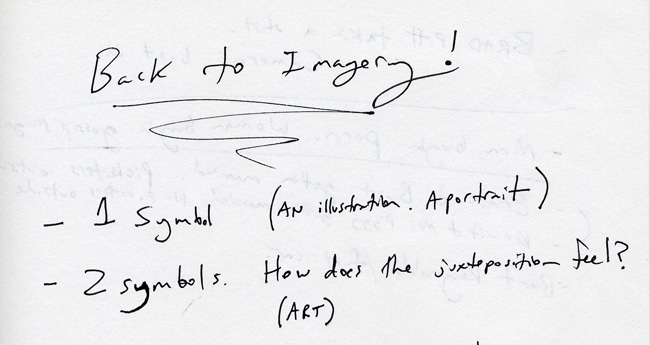 Back to Imagery!
- 1 Symbol (AN illustration. A portrait)
- 2 symbols. How does the juxteposition feel?
(ART)